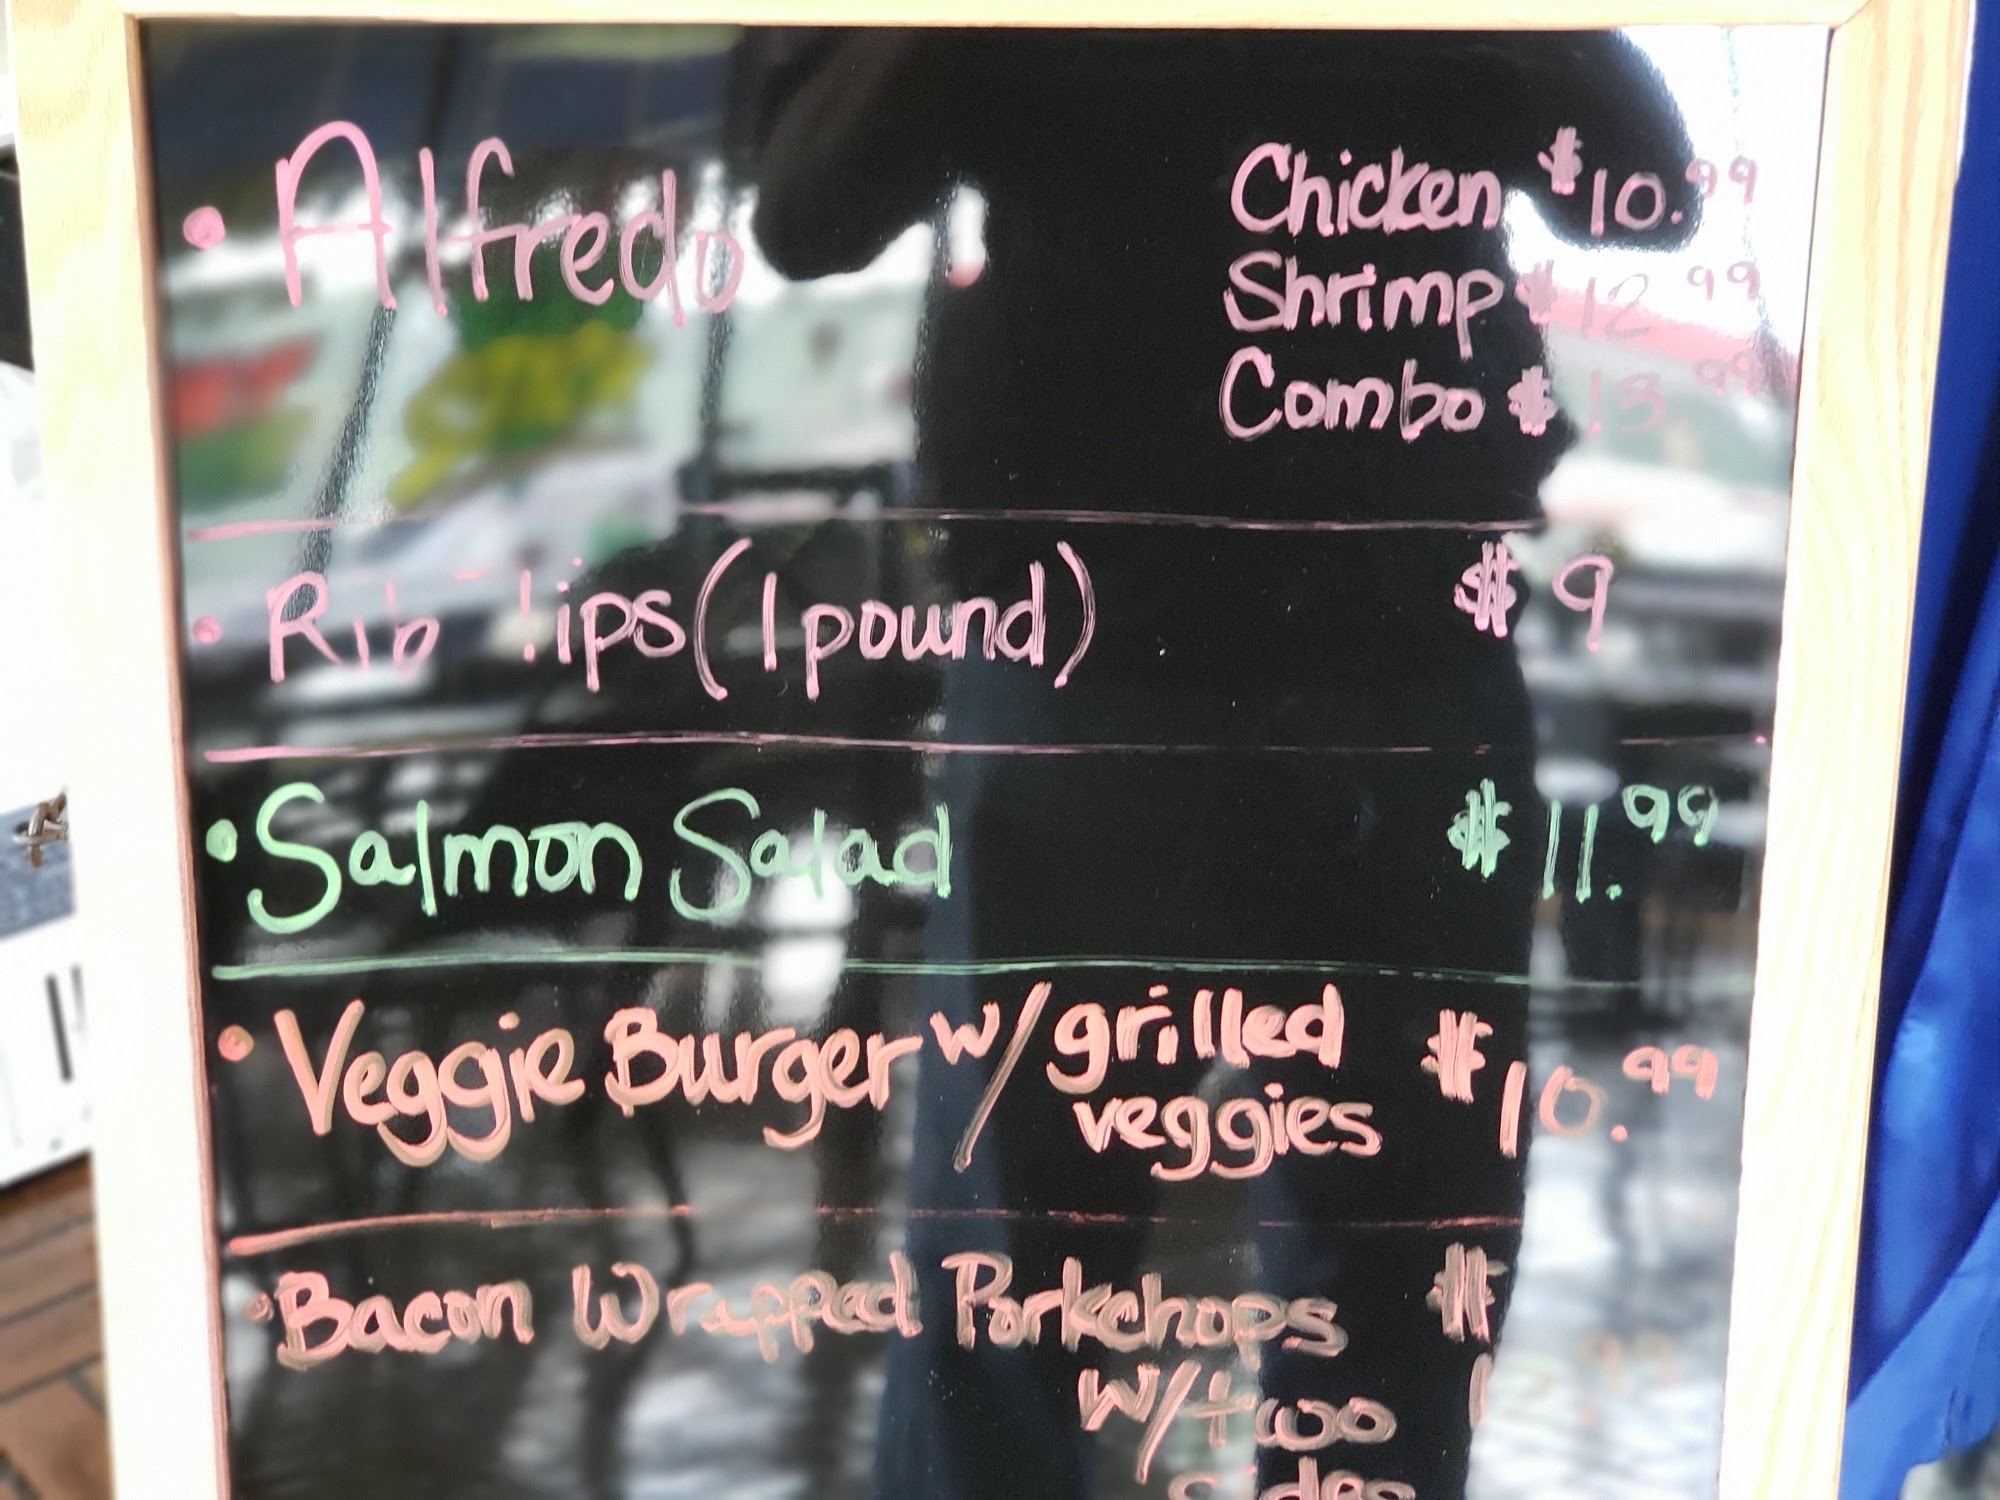 • Alfredo
Chicken $10.99
Shrimp $12.99
Combo $13.99
• Rib Tips (1 pound) $9
• Salmon Salad $11.99
• Veggie Burger w/ grilled $10.99
veggies
• Bacon Wrapped Porkchops $
w/ two
sides